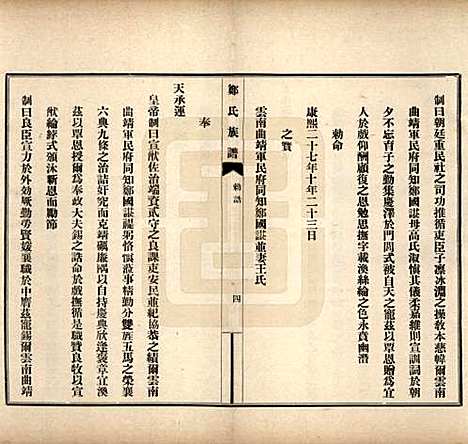 制曰朝廷重民社之司功推循吏臣子凛冰淵之操敎本慈幃爾雲南
曲靖軍民府同知鄭國謀母高氏淑愼其儀柔嘉維則宣訓詞于朝
夕不忘育子之勤集慶澤于門閭式被自天之寵茲以覃恩贈爲宜
人於戲仰酬顧復之恩勉思撫字載渙絲綸之色永賁幽潛
勅命
康熙二十七年十年二十三日
之寶
雲南曲靖軍民府同知鄭國謀並妻王氏
鄭氏族譜
勅誥
四
奉
天承運
皇帝制曰宣猷佐治端資貳守之良課吏安民並紀協恭之績爾雲南
曲靖軍民府同知鄭國謀躬恪愼蒞事精勤分雙五馬之榮襄
六典九條之治詰奸究而克靖礪廉隅以自持慶典欣逢褒章宜渙
茲以覃恩授爾爲奉政大夫錫之誥命於戲撫循是職贊良牧以宣
猷綸綍式頒泳新恩而勵節
制曰良臣宣力於外効厥勤勞賢媛襄職於中膺茲寵錫爾雲南曲靖